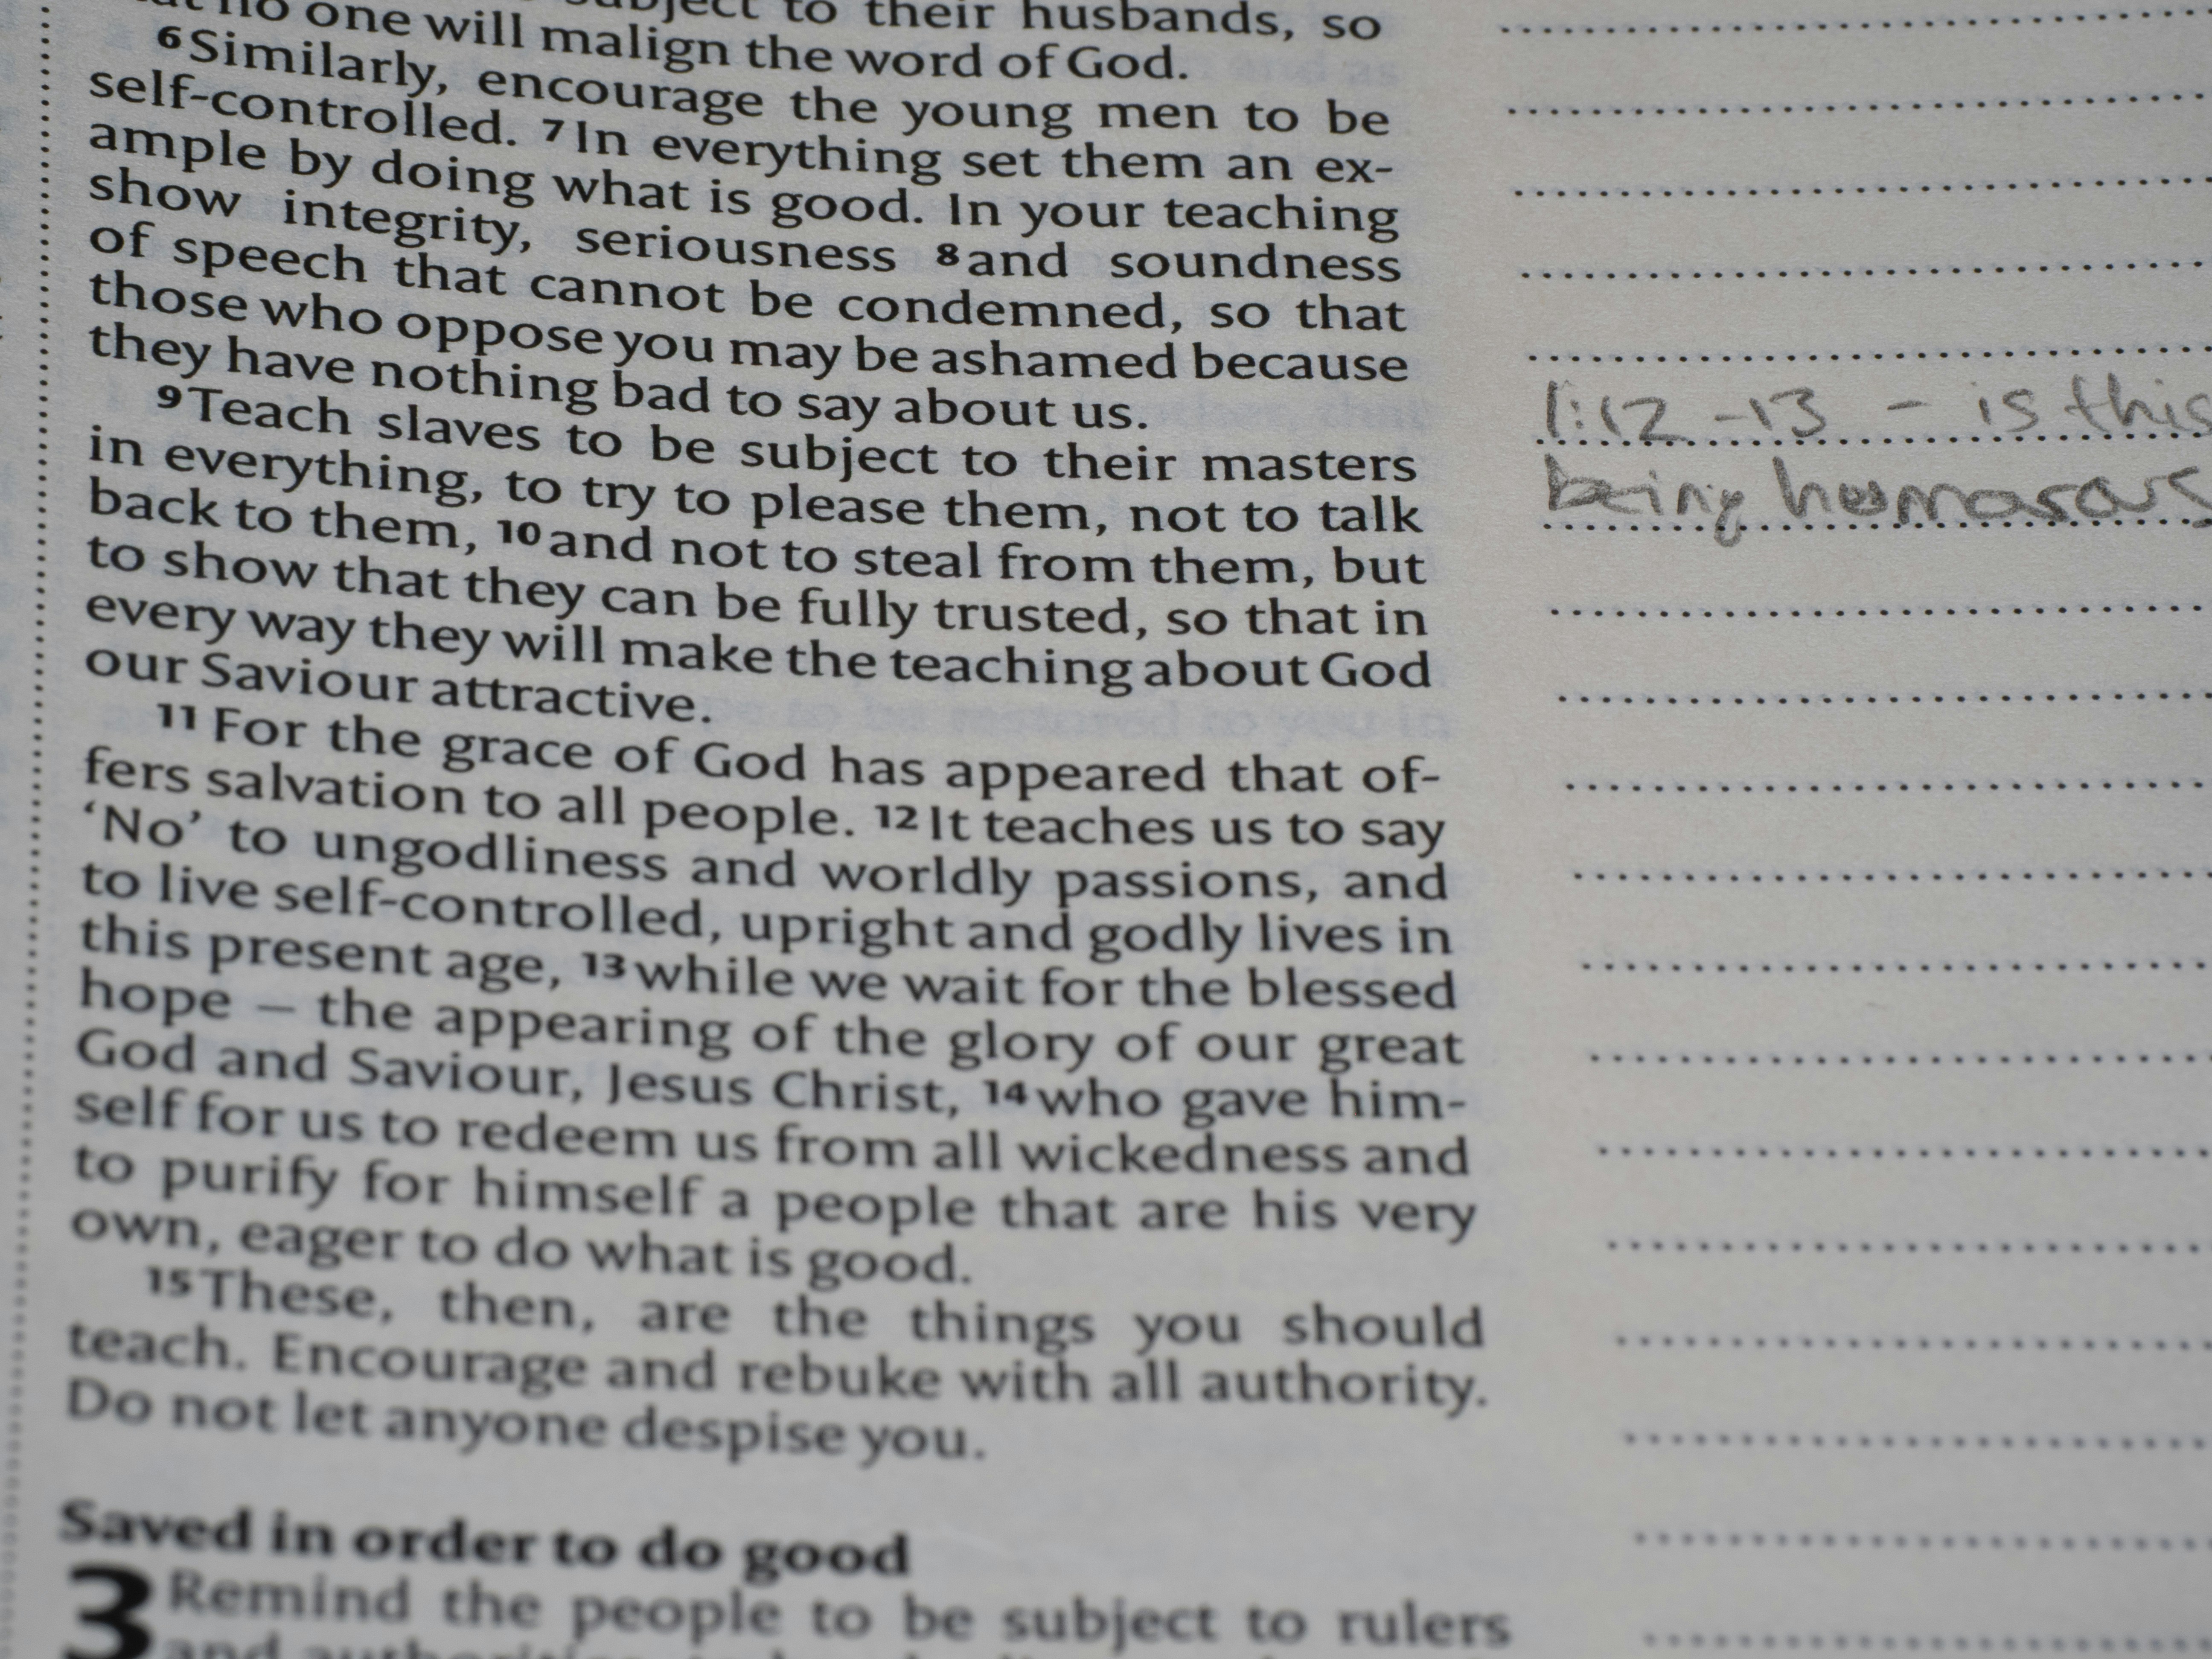 no one will malign the word of God.
subject to their husbands, so
6 Similarly, encourage the young men to be
self-controlled. 7 In everything set them an ex-
ample by doing what is good. In your teaching
show integrity, seriousness 8 and soundness
of speech that cannot be condemned, so that
those who oppose you may be ashamed because
they have nothing bad to say about us.
9 Teach slaves to be subject to their masters
in everything, to try to please them, not to talk
back to them, 10 and not to steal from them, but
to show that they can be fully trusted, so that in
every way they will make the teaching about God
our Saviour attractive.
11 For the grace of God has appeared that of-
fers salvation to all people. 12 It teaches us to say
‘No’ to ungodliness and worldly passions, and
to live self-controlled, upright and godly lives in
this present age, 13 while we wait for the blessed
hope – the appearing of the glory of our great
God and Saviour, Jesus Christ, 14 who gave him-
self for us to redeem us from all wickedness and
to purify for himself a people that are his very
own, eager to do what is good.
15 These, then, are the things you should
teach. Encourage and rebuke with all authority.
Do not let anyone despise you.
Saved in order to do good
3 Remind the people to be subject to rulers
and
1:12-13 - is this
being